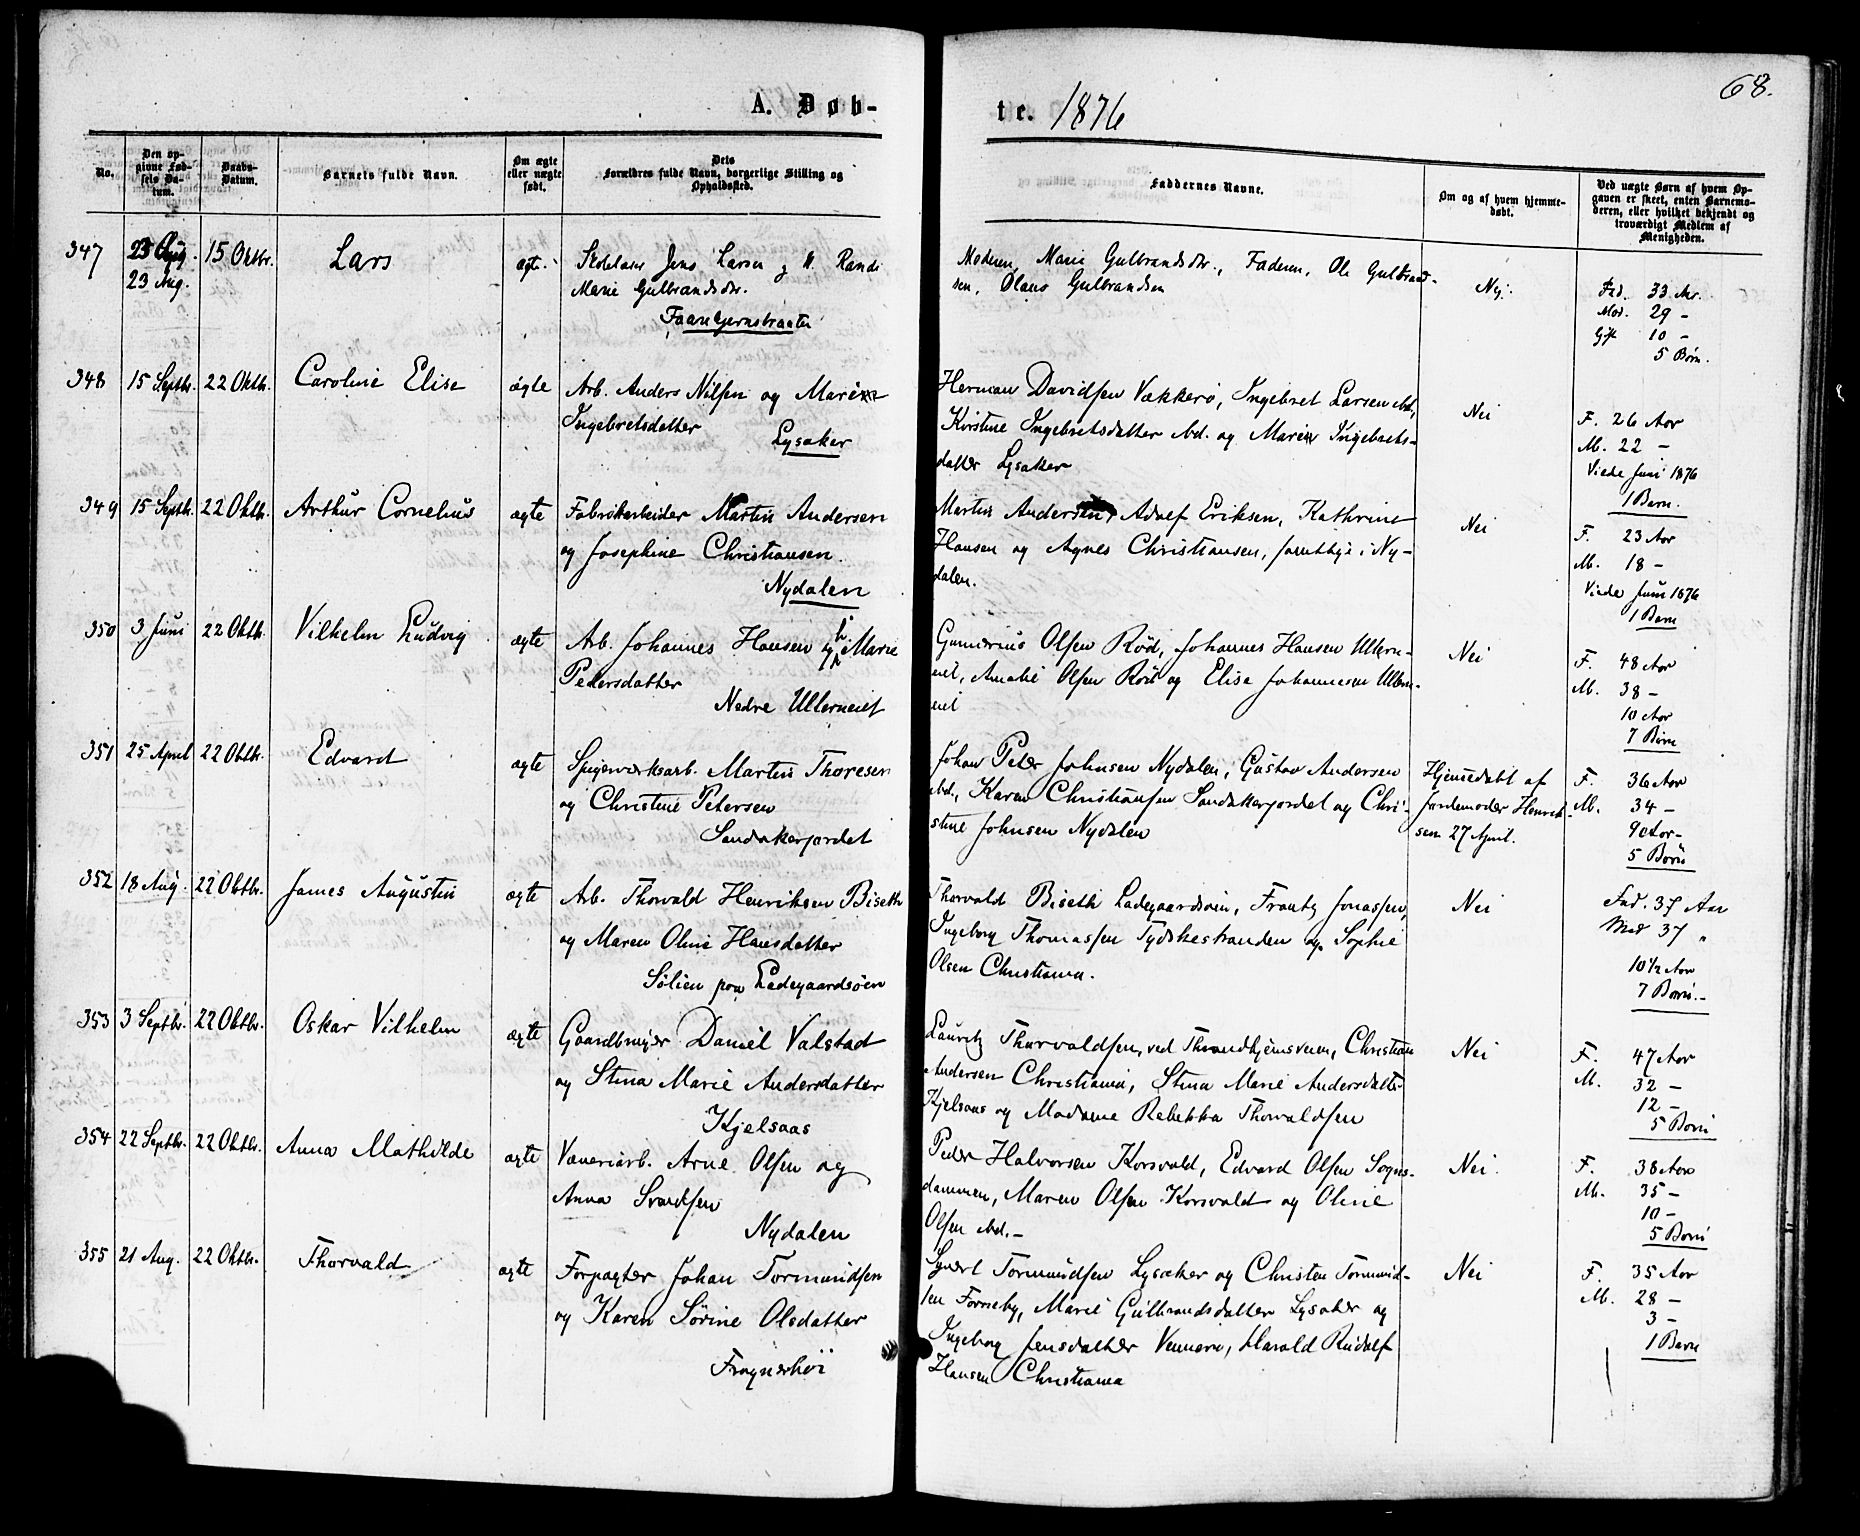 68.
A. Døb-
te. 1876
No.
Den op-
givne Fød-
sels Da-
tum.
Daabs-
Datum.
Barnets fulde Navn.
Om ægte
eller uægte
født.
Dets
Forældres fulde Navn, borgerlige Stilling og
Opholdssted.
Faddernes Navne.
Om og af hvem hjemme-
døbt.
Ved uægte Børn af hvem Op-
gaven er skeet, enten Barnemo-
deren, eller hvilket bekjendt og
troværdigt Medlem af
Menigheden.
347 23 Aug. 15 Oktbr. Lars ægte Jens Larsen og H. Randi
23 Aug. Marie Gulbrandsdtr.
Moderen, Marie Gulbrandsdtr., Faderen, Ole Gulbrand-
sen, Olaus Gulbrandsen
Nej.
Fad. 33 Aar.
Mod. 29 -
Gift 10 -
5 Børn.
348 15 Septbr. 22 Oktb. Caroline Elise ægte Arb. Anders Nilsen og Maren
Ingebretsdatter
Lysaker
Herman Davidsen Vækkerø, Ingebret Larsen ibd.,
Kirstine Ingebretsdatter ibd. og Maren Ingebrets-
datter Lysaker
Nei
F. 26 Aar
M. 22 -
Viede Juni 1876
1 Barn.
349 15 Septb. 22 Oktb. Arthur Cornelius ægte Fabrikarbeider Martin Andersen
og Josephine Christiansen.
Nydalen
Martin Andersen, Adolf Eriksen, Kathrine
Hansen og Agnes Christiansen, samtlige i Ny-
dalen.
Nei
F. 23 Aar
M. 18 -
Viede Juni 1876
1 Barn
350 3 Juni 22 Oktb. Vilhelm Ludvig ægte Arb. Johannes Hansen og h. Marie
Pedersdatter
Nedre Ullerneiet
Gunerius Olsen Röd, Johannes Hansen Ullern-
eiet, Amalie Olsen Röd og Elise Johannesen Ullern-
eiet
Nei
F. 48 Aar
M. 38 -
10 Aar
7 Børn
351 25 April 22 Oktbr. Edvard ægte Spigerværksarb. Martin Thoresen
og Christine Petersen
Sandakerjordet
Johan Peter Johnsen Nydalen, Gustav Andersen
ibd., Karen Christiansen Sandakerjordet og Chri-
stine Johnsen Nydalen
Hjemedøbt af
Jordemoder Henrik-
sen 27 April.
F. 36 Aar
M. 34 -
9 Aar -
5 Børn
352 18 Aug. 22 Oktbr. James Augustin ægte Arb. Thorvald Henriksen Biseth
og Maren Oline Hansdatter
Sölien paa Ladegaardsöen
Thorvald Biseth Ladegaardsöen, Frantz Jonassen,
Ingeborg Thomassen Tydskestranden og Sophie
Olsen Christiania.
Nei
Fad. 37 Aar
Mod 37 "
10½ Aar
7 Børn. -
353 3 Septbr. 22 Oktbr. Oskar Vilhelm ægte Gaardbruger Daniel Valstad
og Stina Marie Andersdatter
Kjelsaas
Lauritz Thorvaldsen, ved Throndhjemsveien, Christian
Andersen Christiania, Stina Marie Andersdatter
Kjelsaas og Madame Rebekka Thorvaldsen
Nei
F. 47 Aar
M. 32 -
12 -
5 Børn
354 22 Septbr. 22 Oktbr. Anna Mathilde ægte Væveriarb. Arne Olsen og
Anna
Nydalen
Peder Halvorsen Korsvold, Edvard Olsen Sogns-
dammen, Maren Olsen Korsvold og Oline
Olsen ibd. -
Nei
F. 38 Aar
M. 35 -
10 -
5 Børn
355 21 Aug. 22 Oktbr. Thorvald ægte Forpagter Johan Tormundsen
og Karen Sörine Olsdatter
Frognerhöi
Syvert Tormundsen Lysaker og Christen Tormund-
sen Forneby, Marie Gulbrandsdatter Lysaker og
Ingeborg Jensdatter, Harald Rudolf
Hansen Christiania
Nei
F. 35 Aar
M. 28 -
3 -
1 Barn